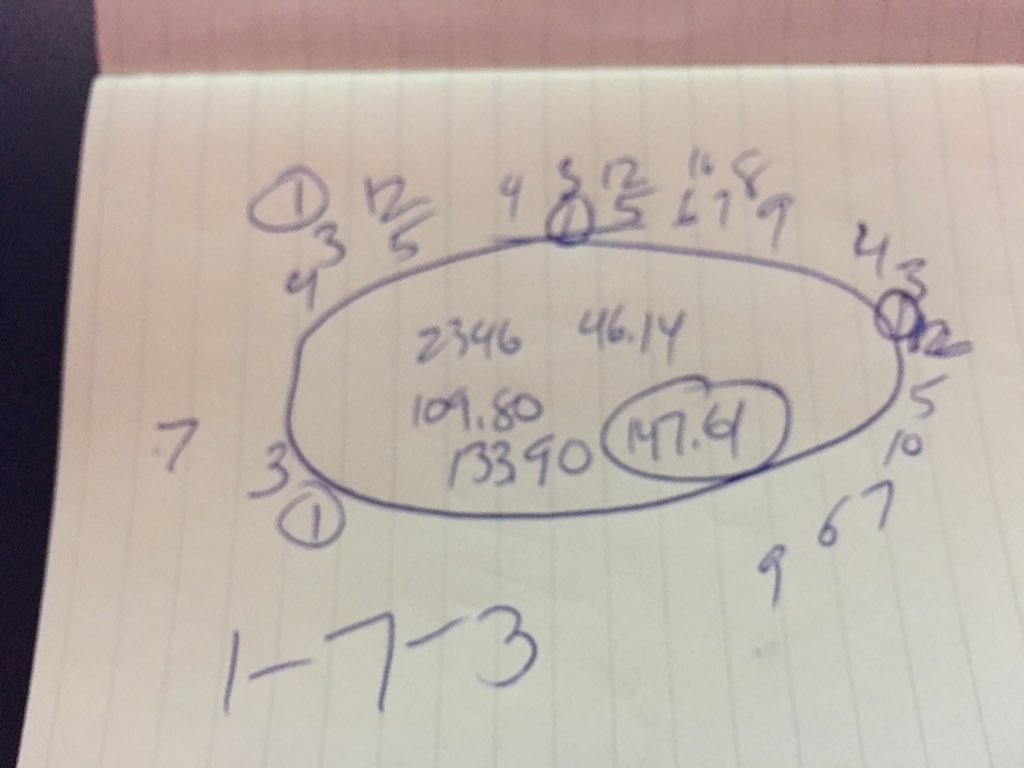 1 12 4 3 12 11 8
3 5 1 5 6 7 9
4 4 3
1 12
2346 46.14
109.80 5
13390 147.61 10
7 3
1 6 7
9
1-7-3